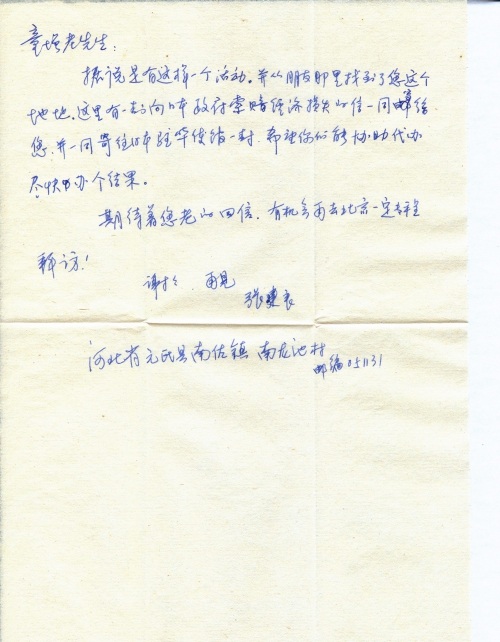 童增老先生：
据说是有这样一个活动。并从朋友那里找到了您这个
地址。这里有一封向日本政府索赔经济损失的信一同寄给
您，并一同寄往日本驻华使馆一封，希望你们能协助代办
尽快办个结果。
期待着您老的回信，有机会再去北京一定专程
拜访！
谢谢、再见
张建良
河北省元氏县南佐镇 南龙池村
邮编051131